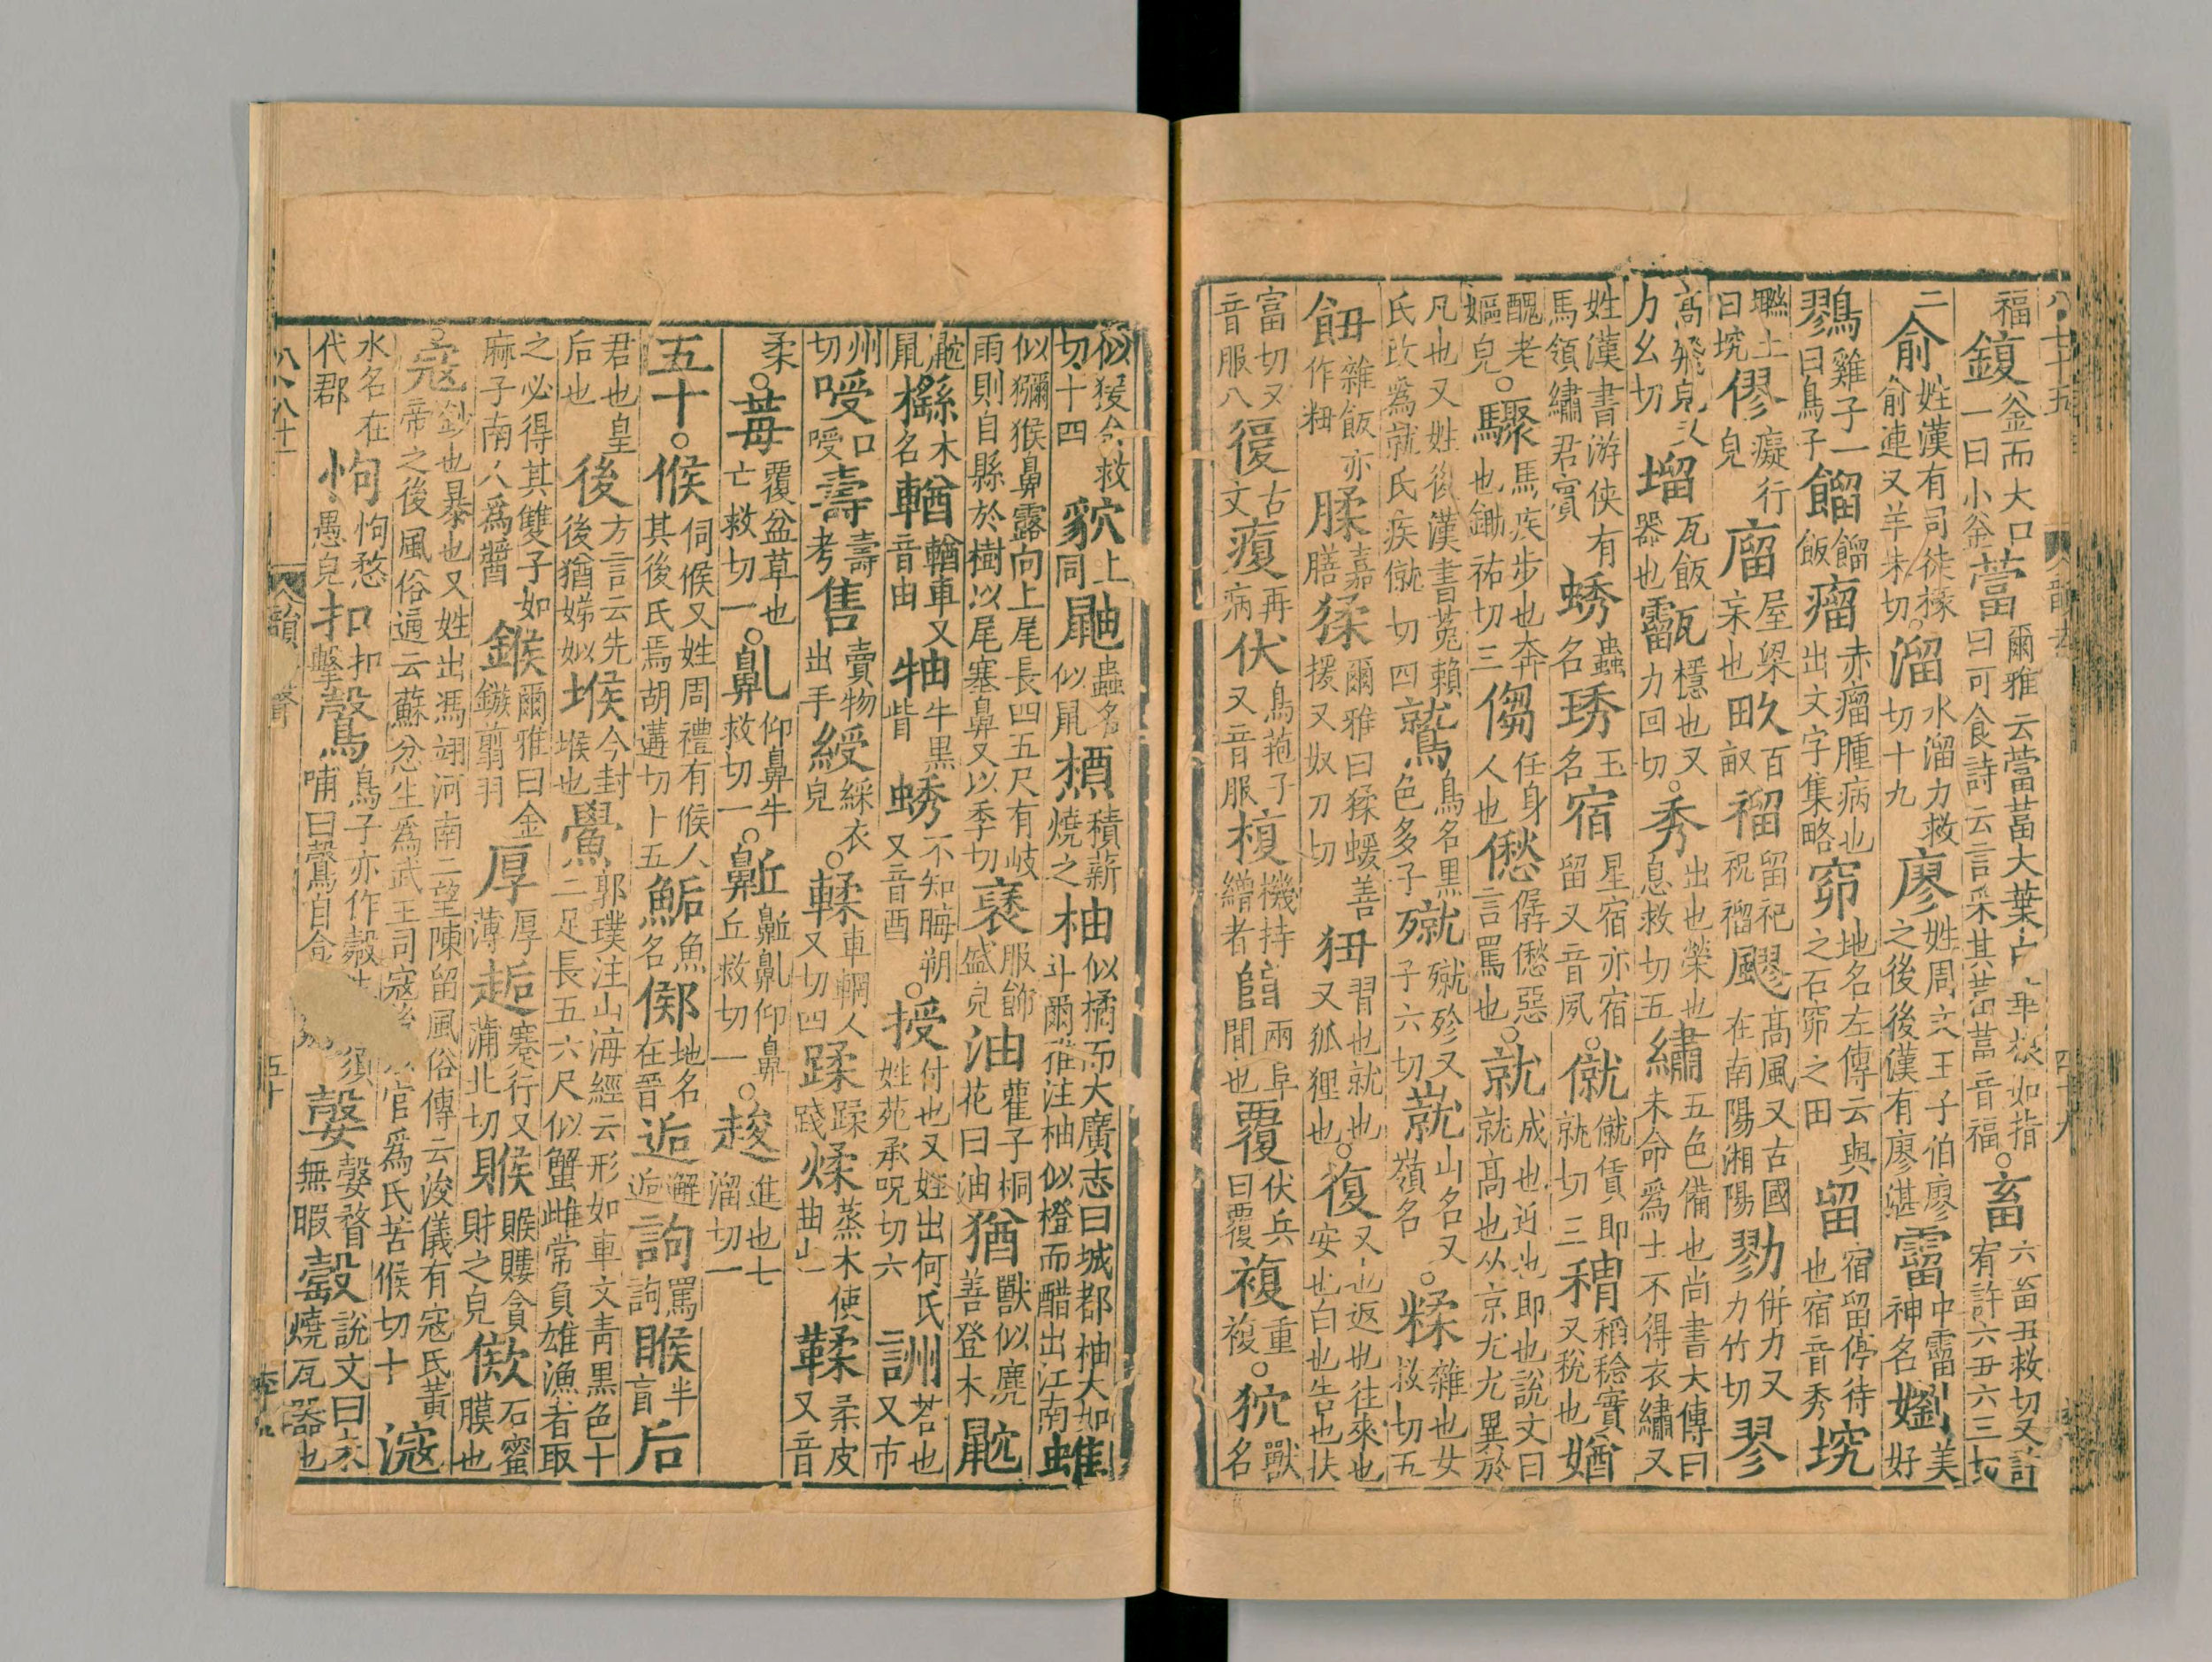 福鍑釜而大口一曰小釜䔰爾雅云䔰葍大葉白華根如指曰可食詩云言采其葍葍音福○畜六畜丑救切又許宥許六丑六三切
二俞姓漢有司徒掾俞連又羊朱切○溜水溜力救切十九廖姓周文王子伯廖之後後漢有廖湛霤中霤神名嬼美好
鷚雞子一曰鳥子餾餾飯瘤赤瘤腫病也出文字集略窌地名左傳云與之石窌之田留宿留停待也宿音秀塯
㽞土曰塯僇癡行皃廇屋梁㝩也畂百畝䄂留祀祝䄂飂高風又古國在南陽湘陽勠併力又力竹切翏
高飛皃又力幺切塯瓦飯器也䨬瓦檼也又力回切○秀出也榮也息救切五繡五色備也尚書大傳曰未命爲士不得衣繡又
姓漢書游俠有馬領繡君賓蜏蟲名琇玉名宿星宿亦宿留又音夙○僦僦賃即就切三䅎稻稔實又稅也媨
醜老嫗皃○驟馬疾步也奔也鋤祐切三㑳任身人也僽僝僽惡言罵也○就成也迎也即也說文曰就高也从京尤尤異於
凡也又姓後漢書菟賴氏改爲就氏疾僦切四鷲鳥名黑色多子殧殧殄又子六切㠇山名又嶺名○糅雜也女救切五
䬔雜飯亦作粈腬嘉膳猱爾雅曰猱蝯善援又奴刀切狃習也就也又狐狸也○復又也返也往來也安也白也告也扶
富切又音服八𢕛古文㾕再病伏鳥菢子又音服椱機持繒者𨺅兩阜間也覆伏兵曰覆複重複○狖獸名
似猨余救切十四貁上同鼬蟲名似鼠槱積薪燒之柚似橘而大廣志曰城都柚大如斗爾雅注柚似橙而醋出江南蜼
似獼猴鼻露向上尾長四五尺有岐雨則自縣於樹以尾塞鼻又以季切褎服飾盛皃油雚子桐花曰油猶獸似麂善登木鼧
鼧鼠櫾木名輶輶車又音由牰牛黑眥蜏不知晦朔又音酉○授付也又姓出何氏姓苑承呪切六詶荅也又市
州切㖟口㖟受壽壽考售賣物出手綬綵衣皃○輮車輞人又切四蹂蹂踐煣蒸木使曲也鞣柔皮又音
柔○莓覆盆草也亡救切一○鼽仰鼻牛救切一○䶌䶌鼽仰鼻丘救切一○趡進也七溜切一
五十○候伺候又姓周禮有候人其後氏焉胡遘切十五鮜魚名郈地名在晉逅邂逅詬罵詬睺半盲后
君也皇后也後方言云先後猶娣姒堠今封堠也鱟郭璞注山海經云形如車文青黑色十二足長五六尺似蟹雌常負雄漁者取
之必得其雙子如麻子南人爲醬鍭爾雅曰金鏃翦羽厚厚薄趏蹇行又蒲北切䞀䞀䞁貪財之皃㰯石蜜膜也
○寇鈔也暴也又姓出馮翊河南二望陳留風俗傳云浚儀有寇氏黃帝之後風俗通云蘇忿生爲武王司寇後以官爲氏苦候切十滱
水名在代郡怐怐愗愚皃扣扣擊鷇鳥子亦作㲉哺曰鷇鳥自食㜌㜌瞀無暇㲉說文曰未燒瓦器也